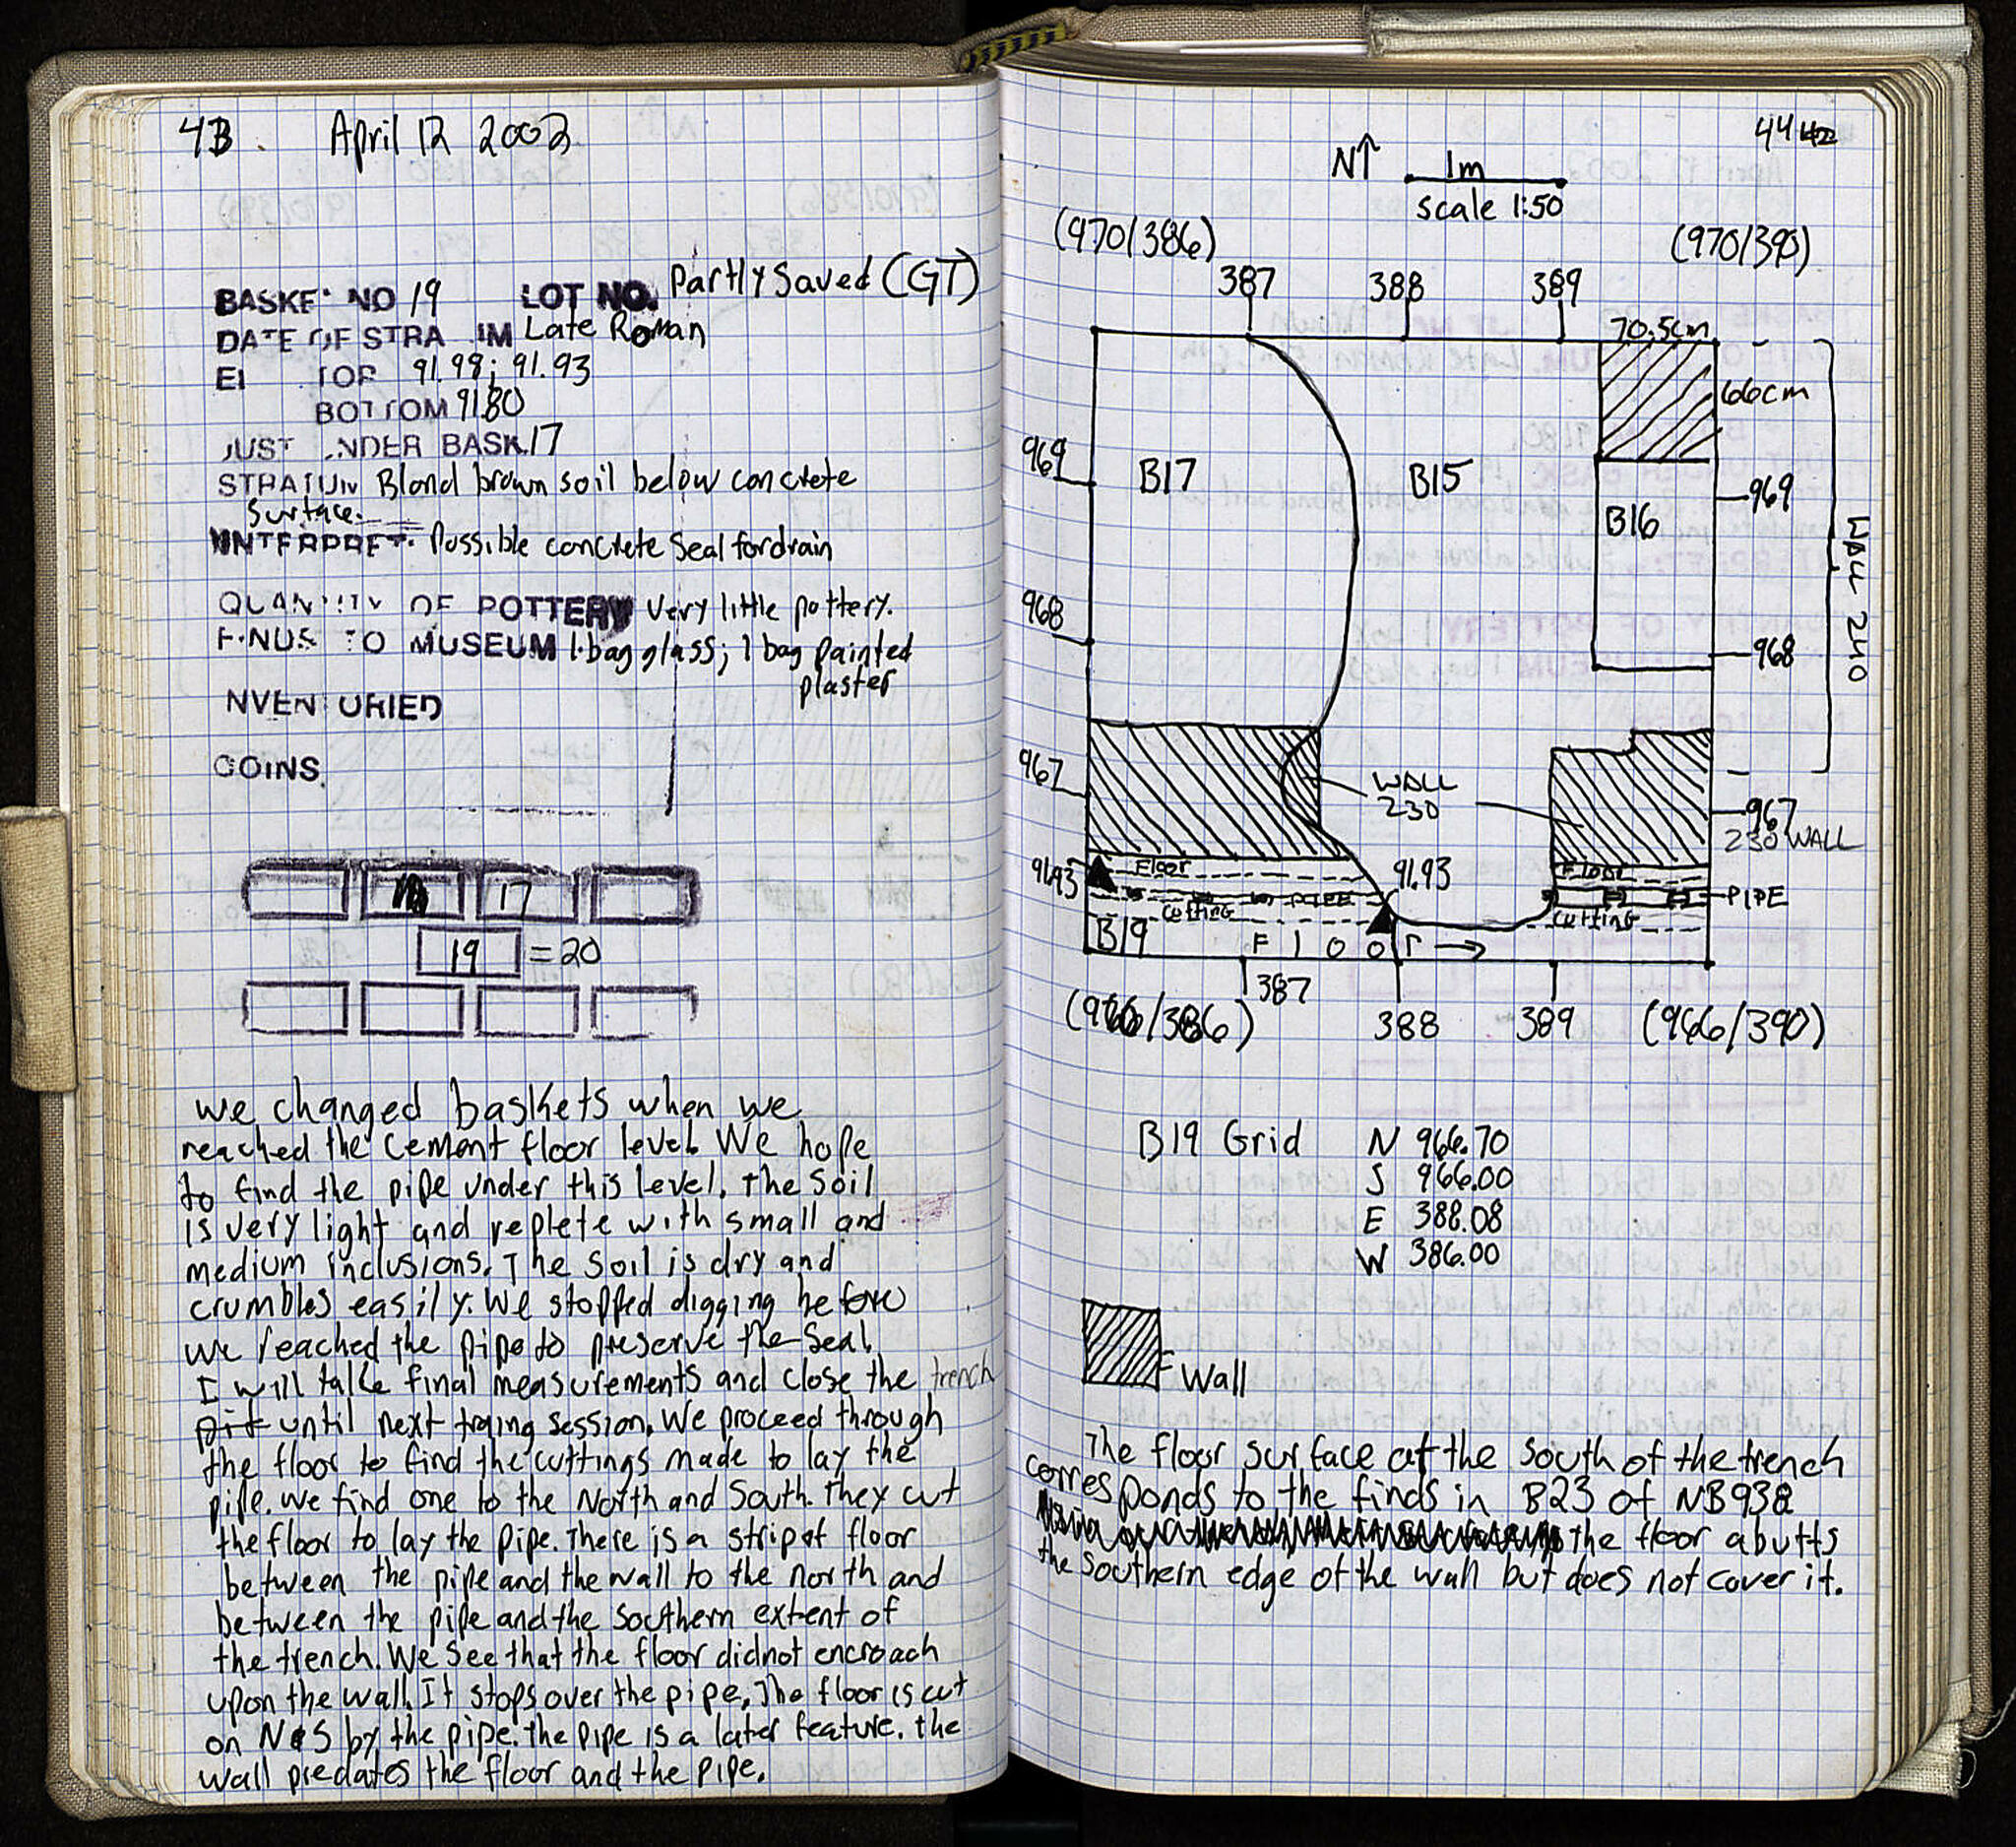 43. April 12 2002
BASKET NO 19 LOT NO. Partly saved (GT)
DATE OF STRA IM Late Roman
El TOP 91.98; 91.93
BOTTOM 91.80
JUST NDER BASK. 17
STRATUM Blond brown soil below concrete
Surface.
INTERPRET. Possible concrete seal for drain
QUAN ITY OF POTTERY Very little pottery.
FINDS TO MUSEUM 1 bag glass; 1 bag painted
plaster
NVENTORIED
COINS
17
19 = 20
we changed baskets when we
reached the cement floor level. We hope
to find the pipe under this level. The soil
is very light and replete with small and
medium inclusions. The soil is dry and
crumbles easily. We stopped digging before
we reached the pipe to preserve the seal.
I will take final measurements and close the trench
pit until next traing session. We proceed through
the floor to find the cuttings made to lay the
pipe. We find one to the North and South. They cut
the floor to lay the pipe. There is a strip of floor
between the pipe and the wall to the north and
between the pipe and the southern extent of
the trench. We see that the floor didnot encroach
upon the wall. It stops over the pipe. The floor is cut
on N&S by the pipe. The pipe is a later feature. The
wall predates the floor and the pipe.
44 42
N↑ 1m
scale 1:50
(970/386) (970/390)
387 388 389
70.5cm
66cm
969 B17 B15 969
B16
WALL 240
968 968
967 WALL 967
230 230 WALL
91.93 Floor 91.93 Floor
PIPE PIPE
cutting cutting
B19 Floor →
387
(966/386) 388 389 (966/390)
B19 Grid N 966.70
S 966.00
E 388.08
W 386.00
= Wall
The floor surface at the south of the trench
corresponds to the finds in B23 of NB938
the floor abutts
the southern edge of the wall but does not cover it.